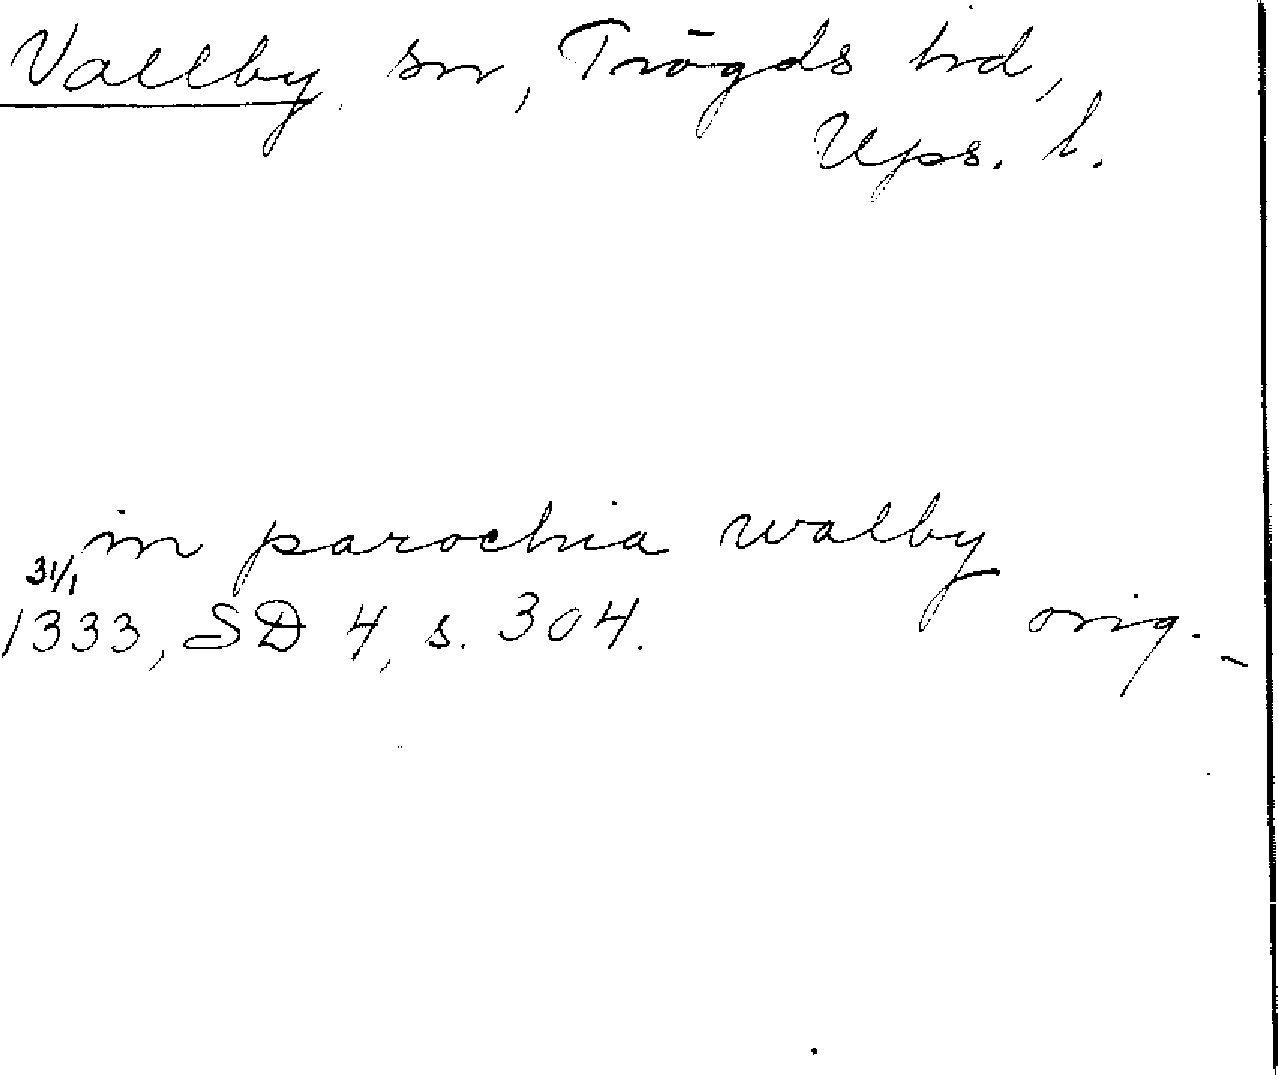 Vallby sn, Trögds hd,
Ups. l.
in parochia walby
31/1
1333, SD 4, s. 304. orig.